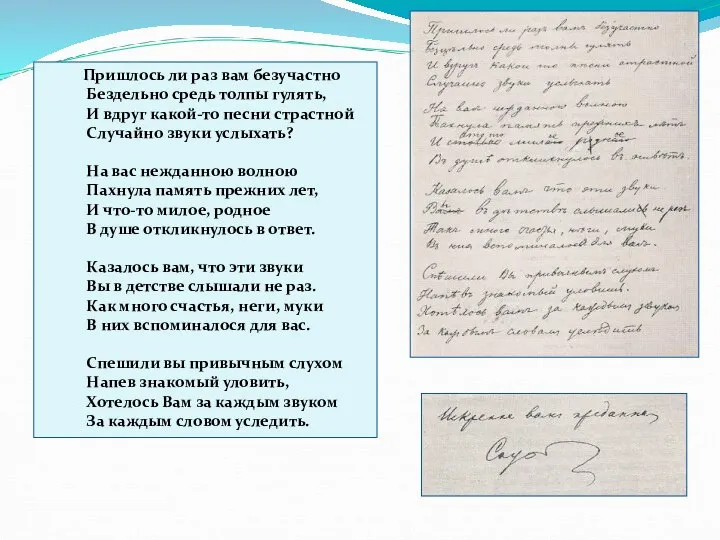 Пришлось ли раз вам безучастно
Бездельно средь толпы гулять,
И вдруг какой-то песни страстной
Случайно звуки услыхать?
На вас нежданною волною
Пахнула память прежних лет,
И что-то милое, родное
В душе откликнулось в ответ.
Казалось вам, что эти звуки
Вы в детстве слышали не раз.
Как много счастья, неги, муки
В них вспоминалося для вас.
Спешили вы привычным слухом
Напев знакомый уловить,
Хотелось Вам за каждым звуком
За каждым словом уследить.
Пришлось ли разъ вамъ безучастно
Безцѣльно средь толпы гулять
И вдругъ какой то пѣсни страстной
Случайно звуки услыхать
На васъ нежданною волною
Пахнула память прежнихъ лѣтъ
И что то милое родное
Въ душѣ откликнулось въ отвѣтъ.
Казалось вамъ что эти звуки
Вы въ дѣтствѣ слышали не разъ
Такъ много счастья, нѣги, муки
Въ нихъ вспоминалось для васъ.
Спѣшили Вы привычнымъ слухомъ
Напѣвъ знакомый уловить.
Хотѣлось вамъ за каждымъ звукомъ
За каждымъ словомъ услѣдить
Искренне вамъ преданный